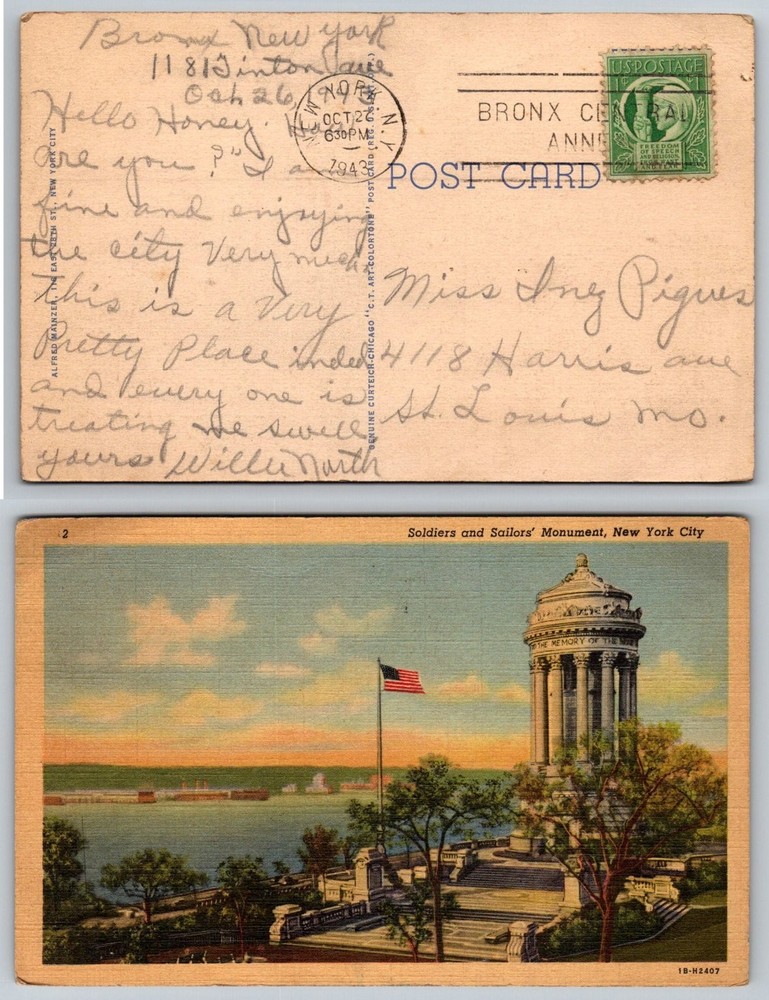 Bronx New York
1181 Tinton ave
Oct 26, 1943
Hello Honey. How
are you? "I am
fine and enjoying
the city Very much.
This is a Very
Pretty Place inded
and every one is
treating me swell,
yours Willie North
NEW YORK, N.Y.
OCT 27
630 PM
1943
BRONX CENTRAL
ANNE
U.S. POSTAGE
1¢ 1¢
FREEDOM
OF SPEECH
AND RELIGION,
FROM WANT
AND FEAR
POST CARD
Miss Inez Pigues
4118 Harris ave
St. Louis Mo.
ALFRED MAINZER, 118 EAST 28TH ST., NEW YORK CITY
GENUINE CURTEICH-CHICAGO "C.T. ART-COLORTONE" POST CARD (REG. U.S. PAT. OFF.)
2
Soldiers and Sailors' Monument, New York City
TO THE MEMORY OF THE
1B-H2407